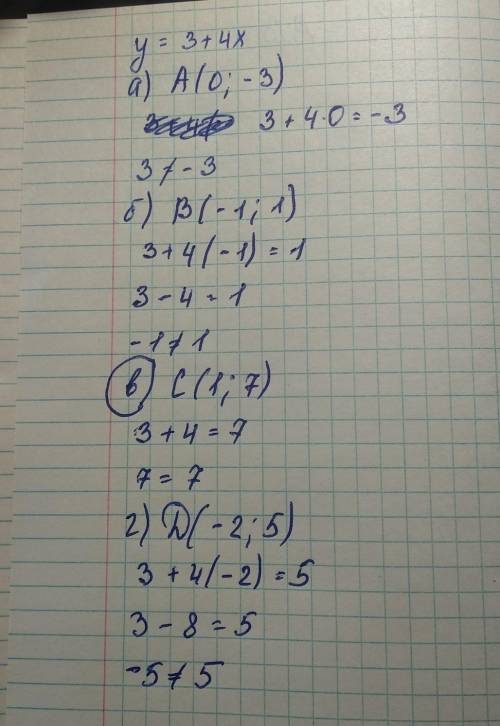 y = 3+4x
а) A(0; -3)
3 + 4·0 = -3
3 ≠ -3
б) B(-1; 1)
3+4(-1) = 1
3 - 4 = 1
-1 ≠ 1
в) C(1; 7)
3 + 4 = 7
7 = 7
г) D(-2; 5)
3 + 4(-2) = 5
3 - 8 = 5
-5 ≠ 5